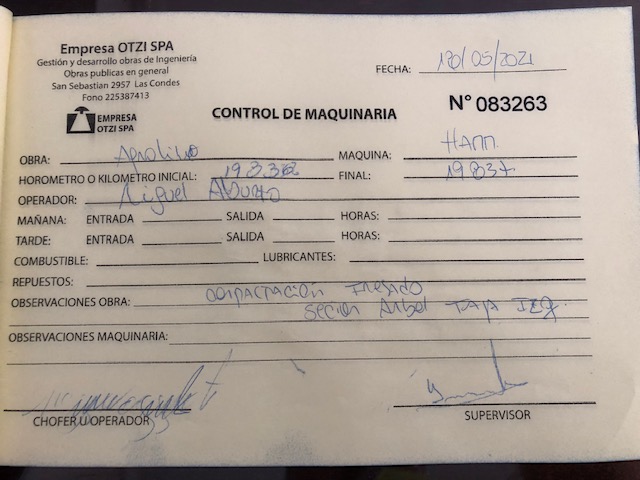 Empresa OTZI SPA
Gestión y desarrollo obras de Ingeniería
Obras publicas en general
San Sebastián 2957 Las Condes
Fono 225387413
EMPRESA
OTZI SPA
CONTROL DE MAQUINARIA
FECHA: /05/2021
N° 083263
OBRA: MAQUINA: HAMM
HOROMETRO O KILOMETRO INICIAL: FINAL: 19837
OPERADOR: Miguel Aburto
MAÑANA: ENTRADA SALIDA HORAS:
TARDE: ENTRADA SALIDA HORAS:
COMBUSTIBLE: LUBRICANTES:
REPUESTOS:
OBSERVACIONES OBRA: compactación
OBSERVACIONES MAQUINARIA:
CHOFER U OPERADOR SUPERVISOR